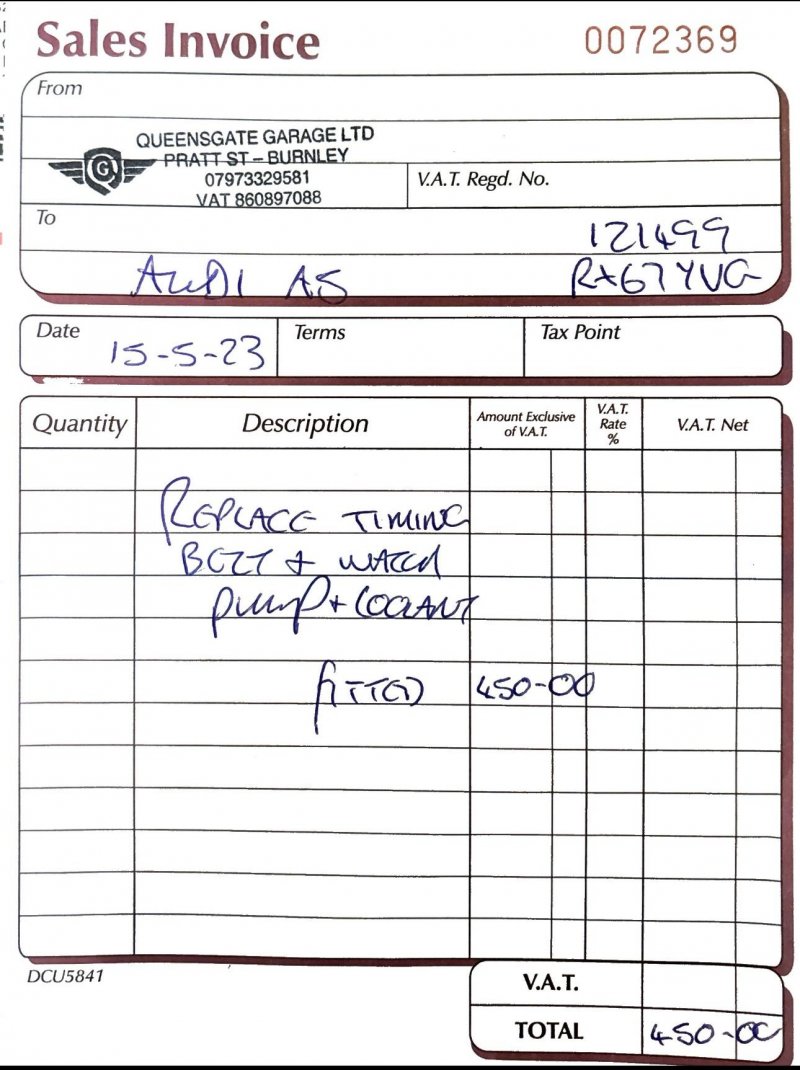 Sales Invoice
0072369
From
QUEENSGATE GARAGE LTD
PRATT ST – BURNLEY
07973329581
VAT 860897088
G
V.A.T. Regd. No.
To
121499
AUDI A5
RX67YUG
Date
15-5-23
Terms
Tax Point
Quantity
Description
Amount Exclusive
of V.A.T.
V.A.T.
Rate
%
V.A.T. Net
REPLACE TIMING
BELT + WATER
PUMP + COOLANT
FITTED 450-00
DCU5841
V.A.T.
TOTAL 450-00